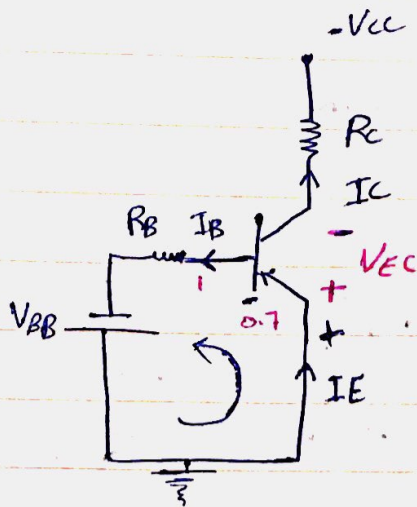 -VCC
RC
IC
RB IB
-
VEC
1
+
-
0.7
+
VBB
IE